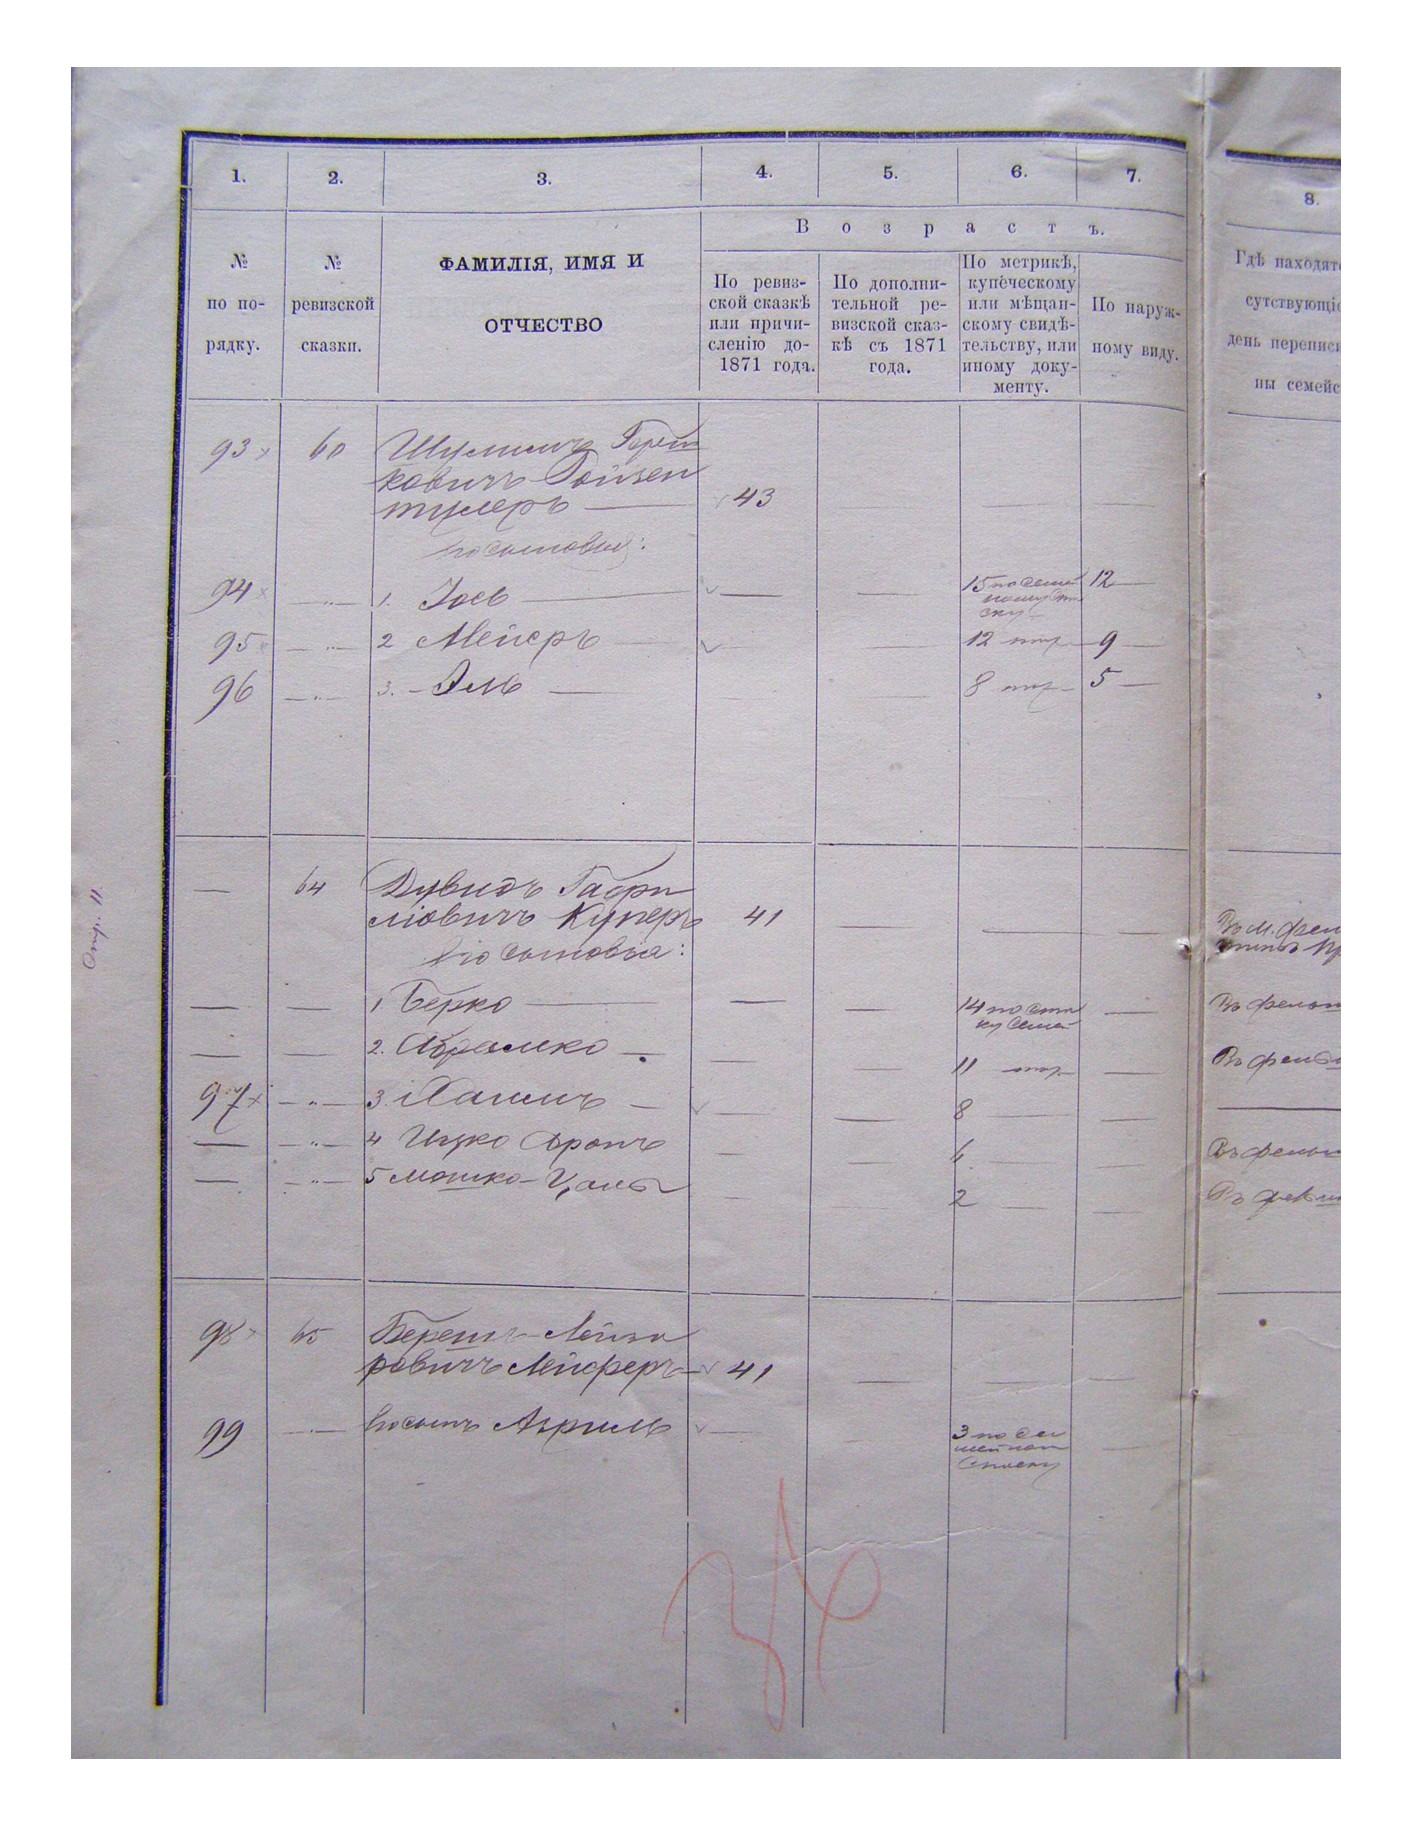 1.
2.
3.
4.
5.
6.
7.
8.
В о з р а с т ъ.
№
по по-
рядку.
№
ревизской
сказки.
ФАМИЛІЯ, ИМЯ И
ОТЧЕСТВО
По ревиз-
ской сказкѣ
или причи-
сленію до-
1871 года.
По дополни-
тельной ре-
визской сказ-
кѣ съ 1871
года.
По метрикѣ,
купеческому
или мѣщан-
скому свидѣ-
тельству, или
иному доку-
менту.
По наруж-
ному виду.
Гдѣ находят
сутствующі
день переписи
ны семейс
93 60 Шулимъ
43
его сыновья:
94 1. Іось 15 по семей 12
95 2 Мейеръ 12 9
96 3. Эль 8 5
64 Дувидъ Гаври
ліовичъ Куперъ 41
его сыновья:
1. Берко 14 по спи
ку семей
2. Абрамко 11
97 3. Хаимъ 8
4 Ицко Аронъ 6
5 Мошко-Цаль 2
98 65 Берешъ Лейзо
ровичъ Лейферъ 41
99 его сынъ Азриль 3 по се
мейном
списку
Стр. 11.